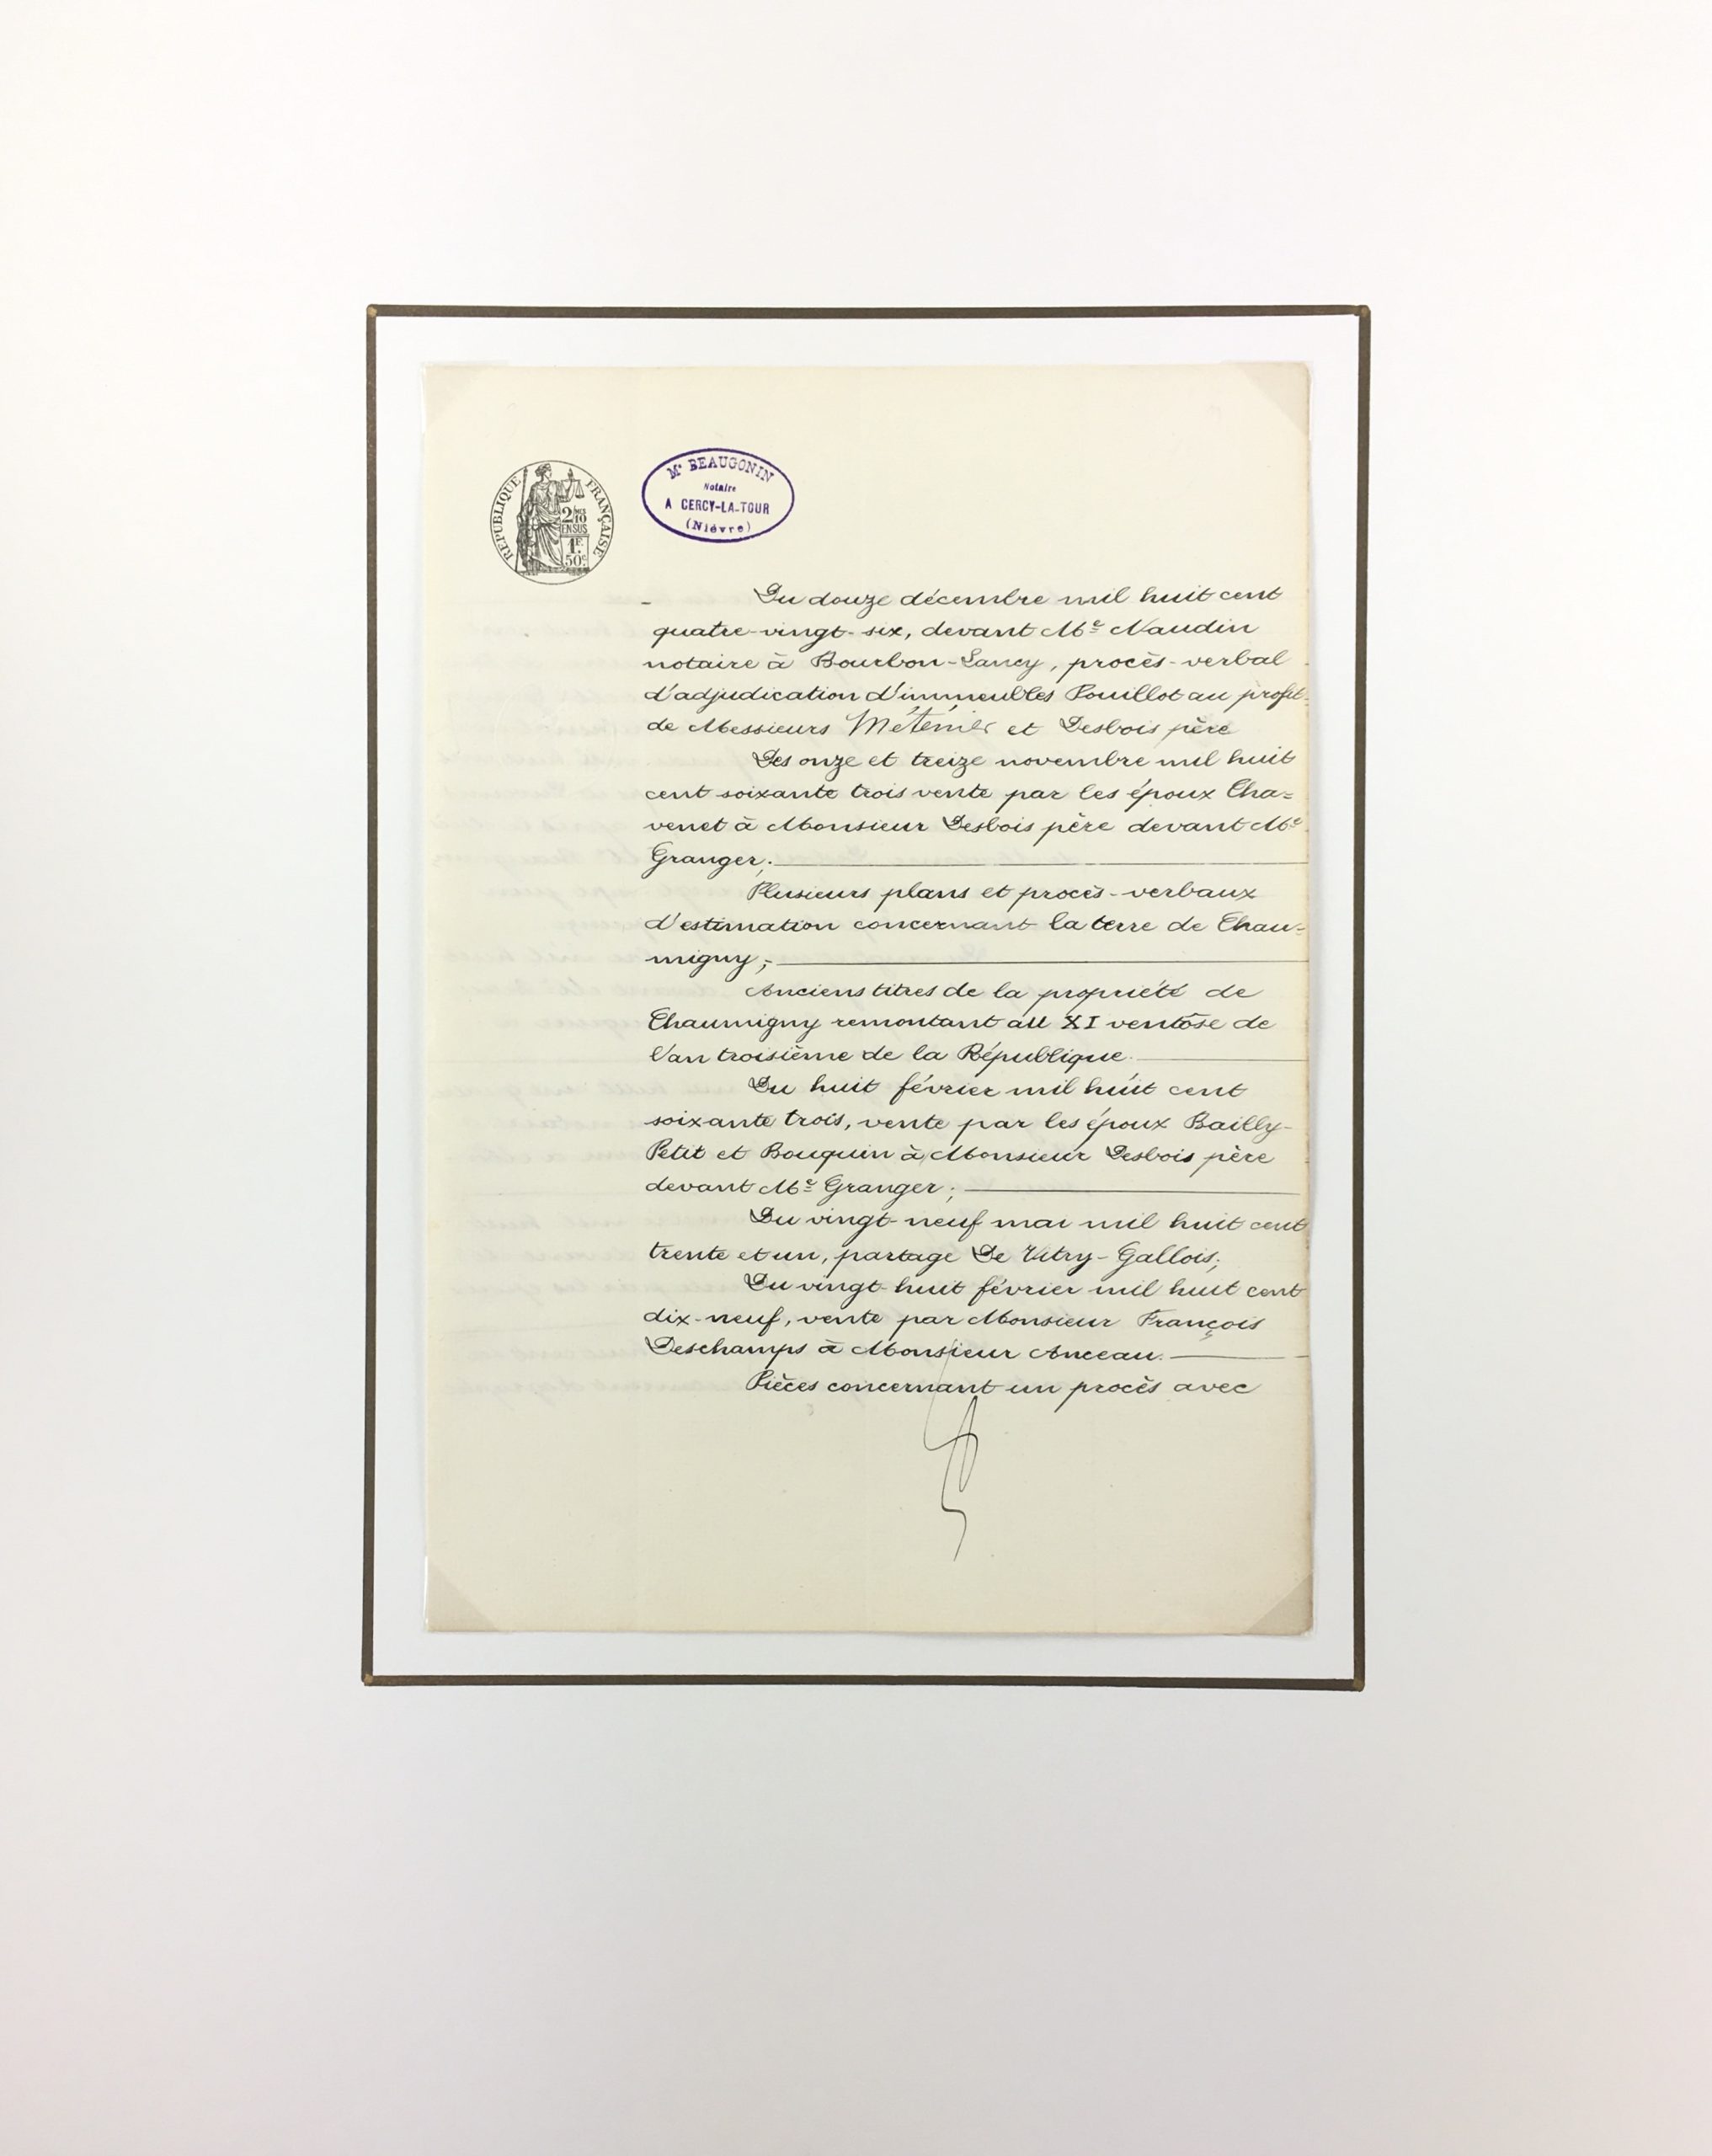 RÉPUBLIQUE FRANÇAISE
2/10
EN SUS
1F.
50c.
Me BEAUGONIN
Notaire
A CERCY-LA-TOUR
(Nièvre)
Du douze décembre mil huit cent
quatre-vingt-six, devant Me Naudin
notaire à Bourbon-Lancy, procès-verbal
d'adjudication d'immeubles Pouillot au profit
de Messieurs Méténier et Desbois père
Des onze et treize novembre mil huit
cent soixante trois vente par les époux Cha=
venet à Monsieur Desbois père devant Me
Granger;
Plusieurs plans et procès-verbaux
d'estimation concernant la terre de Chau=
migny;
Anciens titres de la propriété de
Chaumigny remontant au XI ventôse de
l'an troisième de la République
Du huit février mil huit cent
soixante trois, vente par les époux Bailly-
Petit et Bouquin à Monsieur Desbois père
devant Me Granger;
Du vingt-neuf mai mil huit cent
trente et un, partage De Vitry-Gallois;
Du vingt-huit février mil huit cent
dix-neuf, vente par Monsieur François
Deschamps à Monsieur Anceau.
Pièces concernant un procès avec